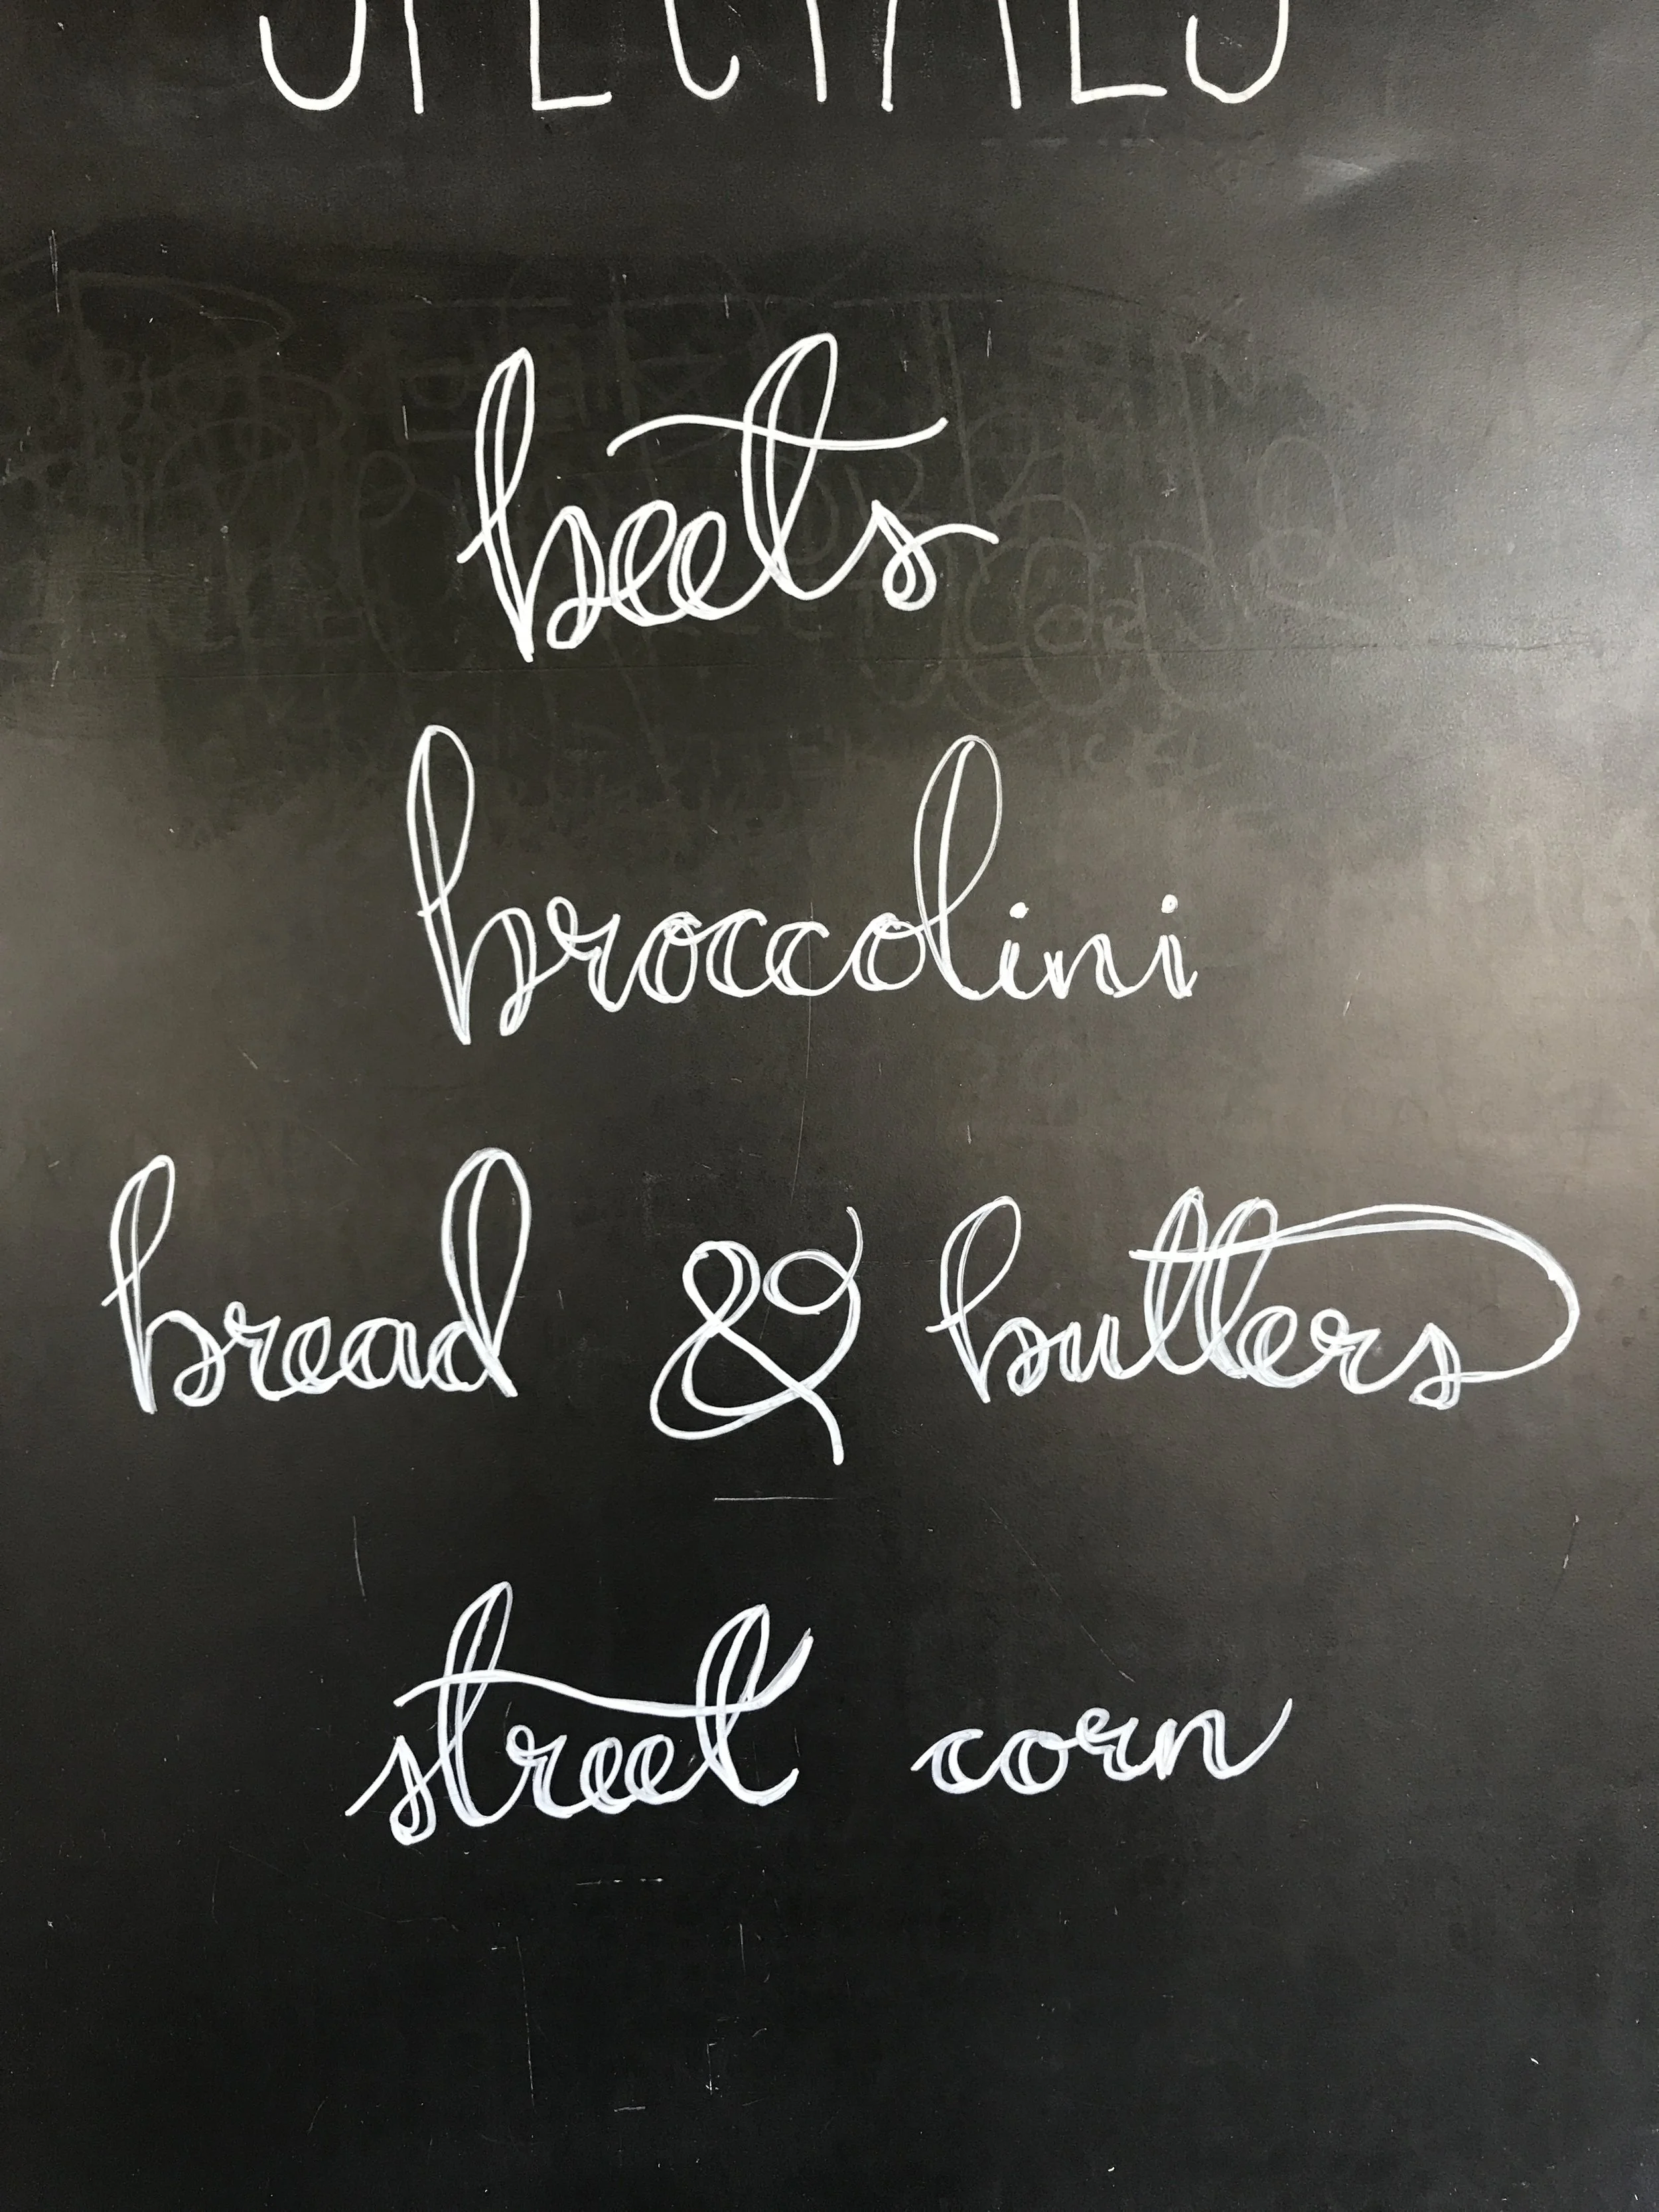 SPECIALS
beets
broccolini
bread & butters
street corn